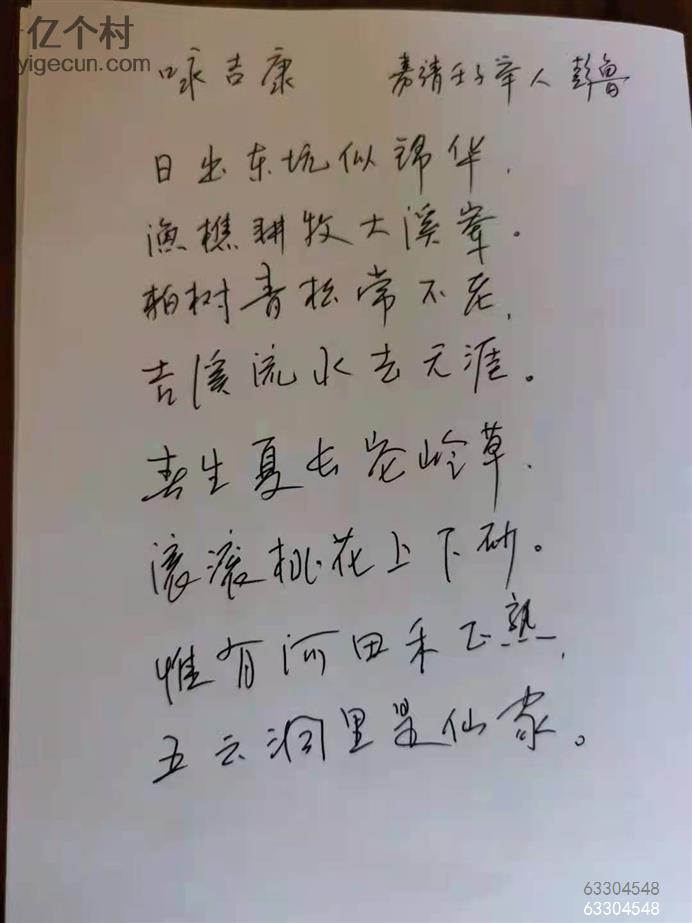 亿个村
yigecun.com
咏吉康 嘉靖壬子举人 彭鲁
日出东坑似锦华,
渔樵耕牧大溪峯。
柏树青松常不老,
吉溪流水去无涯。
春生夏长岩岭草,
滚滚桃花上下砂。
惟有河田禾正熟,
五云洞里是仙家。
63304548
63304548